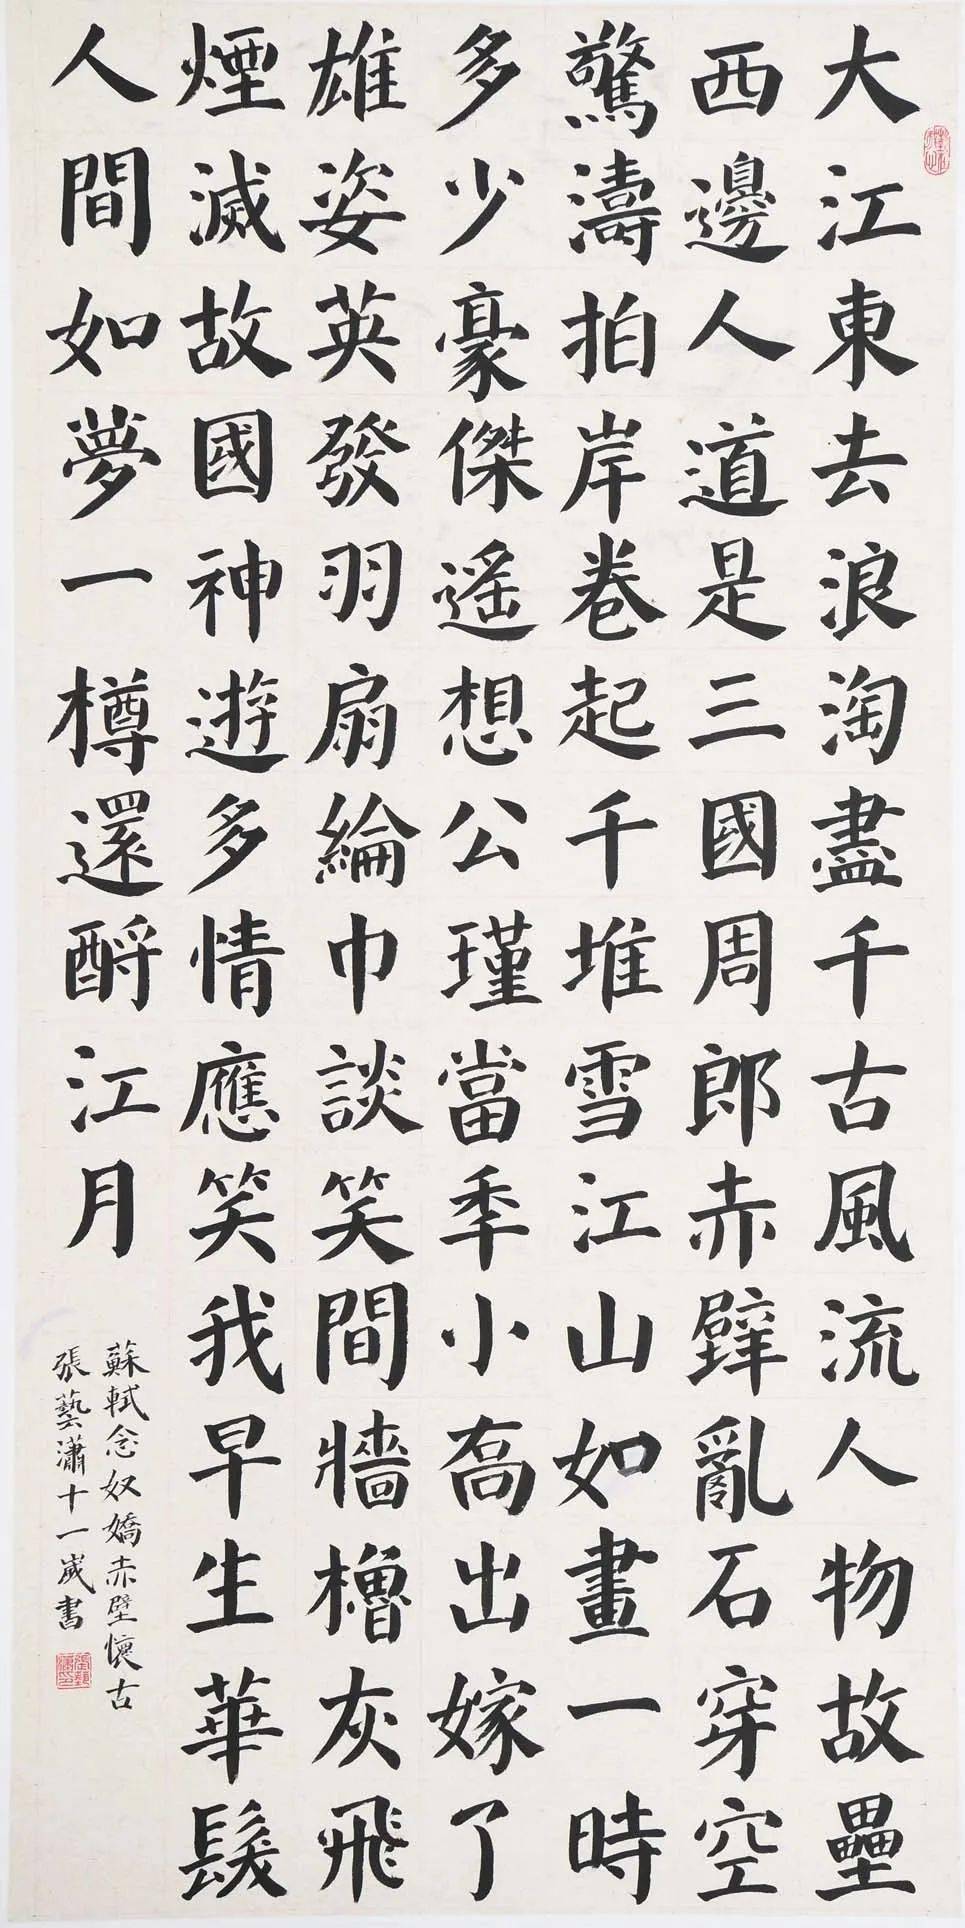 大江東去浪淘盡千古風流人物故壘
西邊人道是三國周郎赤壁亂石穿空
驚濤拍岸卷起千堆雪江山如畫一時
多少豪傑遙想公瑾當季小喬出嫁了
雄姿英發羽扇綸巾談笑間牆櫓灰飛
煙滅故國神遊多情應笑我早生華髮
人間如夢一樽還酹江月
蘇軾念奴嬌赤壁懷古
張藝瀟十一歲書